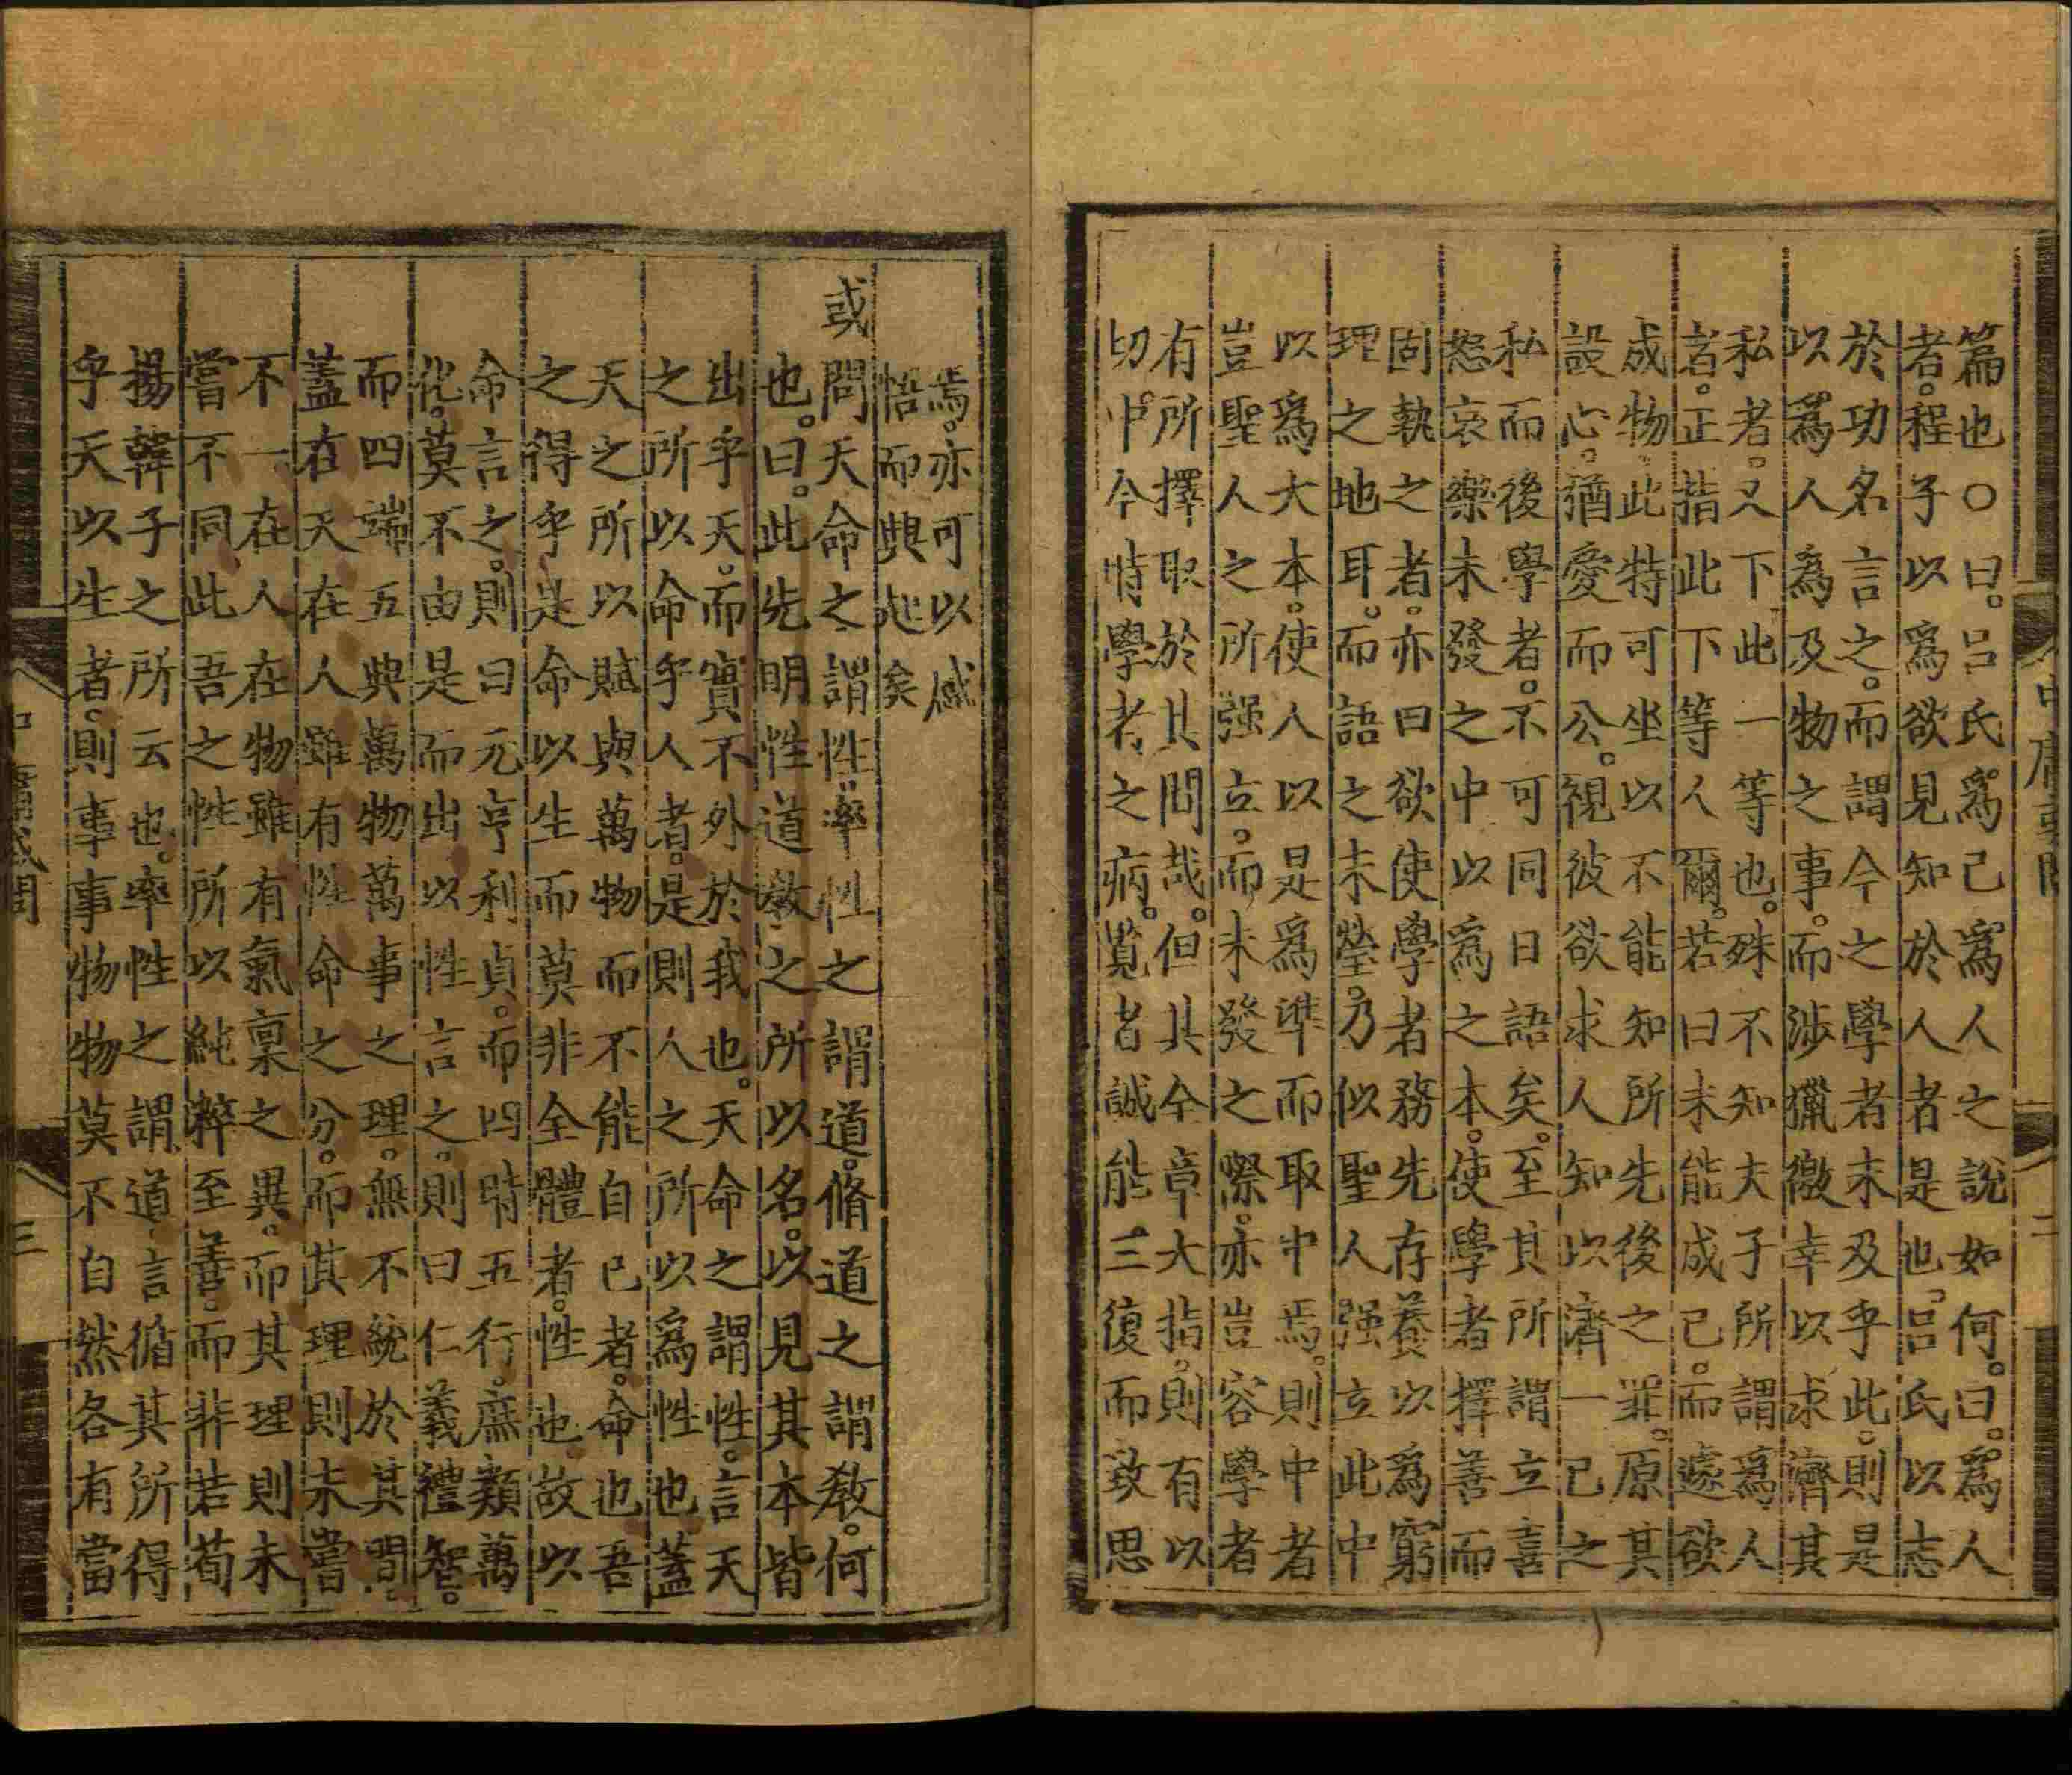 中庸或問 二
篇也○曰。呂氏爲己爲人之說如何。曰。爲人
者。程子以爲欲見知於人者是也。呂氏以志
於功名言之。而謂今之學者未及乎此。則是
以爲人爲及物之事。而涉獵徼幸以求濟其
私者。又下此一等也。殊不知夫子所謂爲人
者。正指此下等人爾。若曰未能成己。而遽欲
成物。此特可坐以不能知所先後之罪。原其
設心。猶愛而公。視彼欲求人知以濟一己之
私而後學者。不可同日語矣。至其所謂立喜
怒哀樂未發之中以爲之本。使學者擇善而
固執之者。亦曰欲使學者務先存養以爲窮
理之地耳。而語之未瑩。乃似聖人强立此中
以爲大本。使人以是爲準而取中焉。則中者
豈聖人之所强立。而未發之際。亦豈容學者
有所擇取於其間哉。但其全章大指。則有以
切中今時學者之病。覽者誠能三復而致思
焉。亦可以感
悟而興起矣
或問天命之謂性。率性之謂道。脩道之謂敎。何
也。曰。此先明性道敎之所以名。以見其本皆
出乎天。而實不外於我也。天命之謂性。言天
之所以命乎人者。是則人之所以爲性也蓋
天之所以賦與萬物而不能自已者。命也吾
之得乎是命以生而莫非全體者。性也。故以
命言之。則曰元亨利貞。而四時五行。庶類萬
化。莫不由是而出以性言之。則曰仁義禮智。
而四端五典萬物萬事之理。無不統於其間。
蓋在天在人雖有性命之分。而其理則未嘗
不一。在人在物雖有氣稟之異。而其理則未
嘗不同此吾之性所以純粹至善。而非若荀
揚韓子之所云也。率性之謂道。言循其所得
乎天以生者。則事事物物莫不自然各有當
中庸或問 三